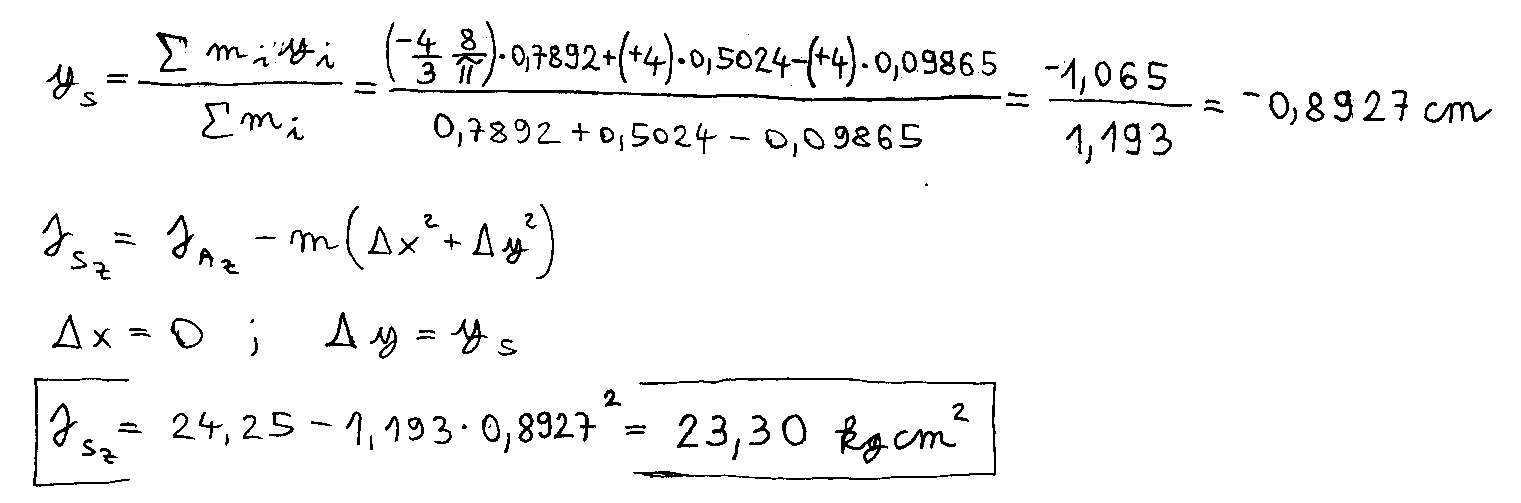 y_s = Σ m_i y_i / Σ m_i = ((-4/3 8/π)·0,7892+(+4)·0,5024-(+4)·0,09865) / (0,7892+0,5024-0,09865) = -1,065 / 1,193 = -0,8927 cm
J_Sz = J_Az - m(Δx² + Δy²)
Δx = 0 ; Δy = y_s
J_Sz = 24,25 - 1,193·0,8927² = 23,30 kg cm²